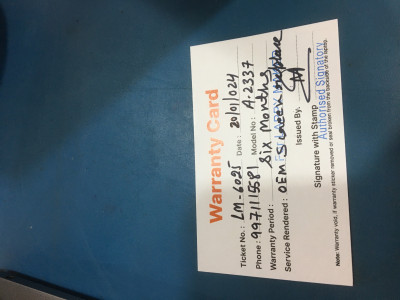 Warranty Card
Ticket No.: LM-6025 Date: 20/01/024
Phone: 9971115581 Model No: A-2337
Warranty Period: Six Months
Service Rendered: OEM Screen
Issued By.
Signature with Stamp
Authorised Signatory
Note: Warranty void, if warranty sticker removed or seal broken from the backside of the laptop.